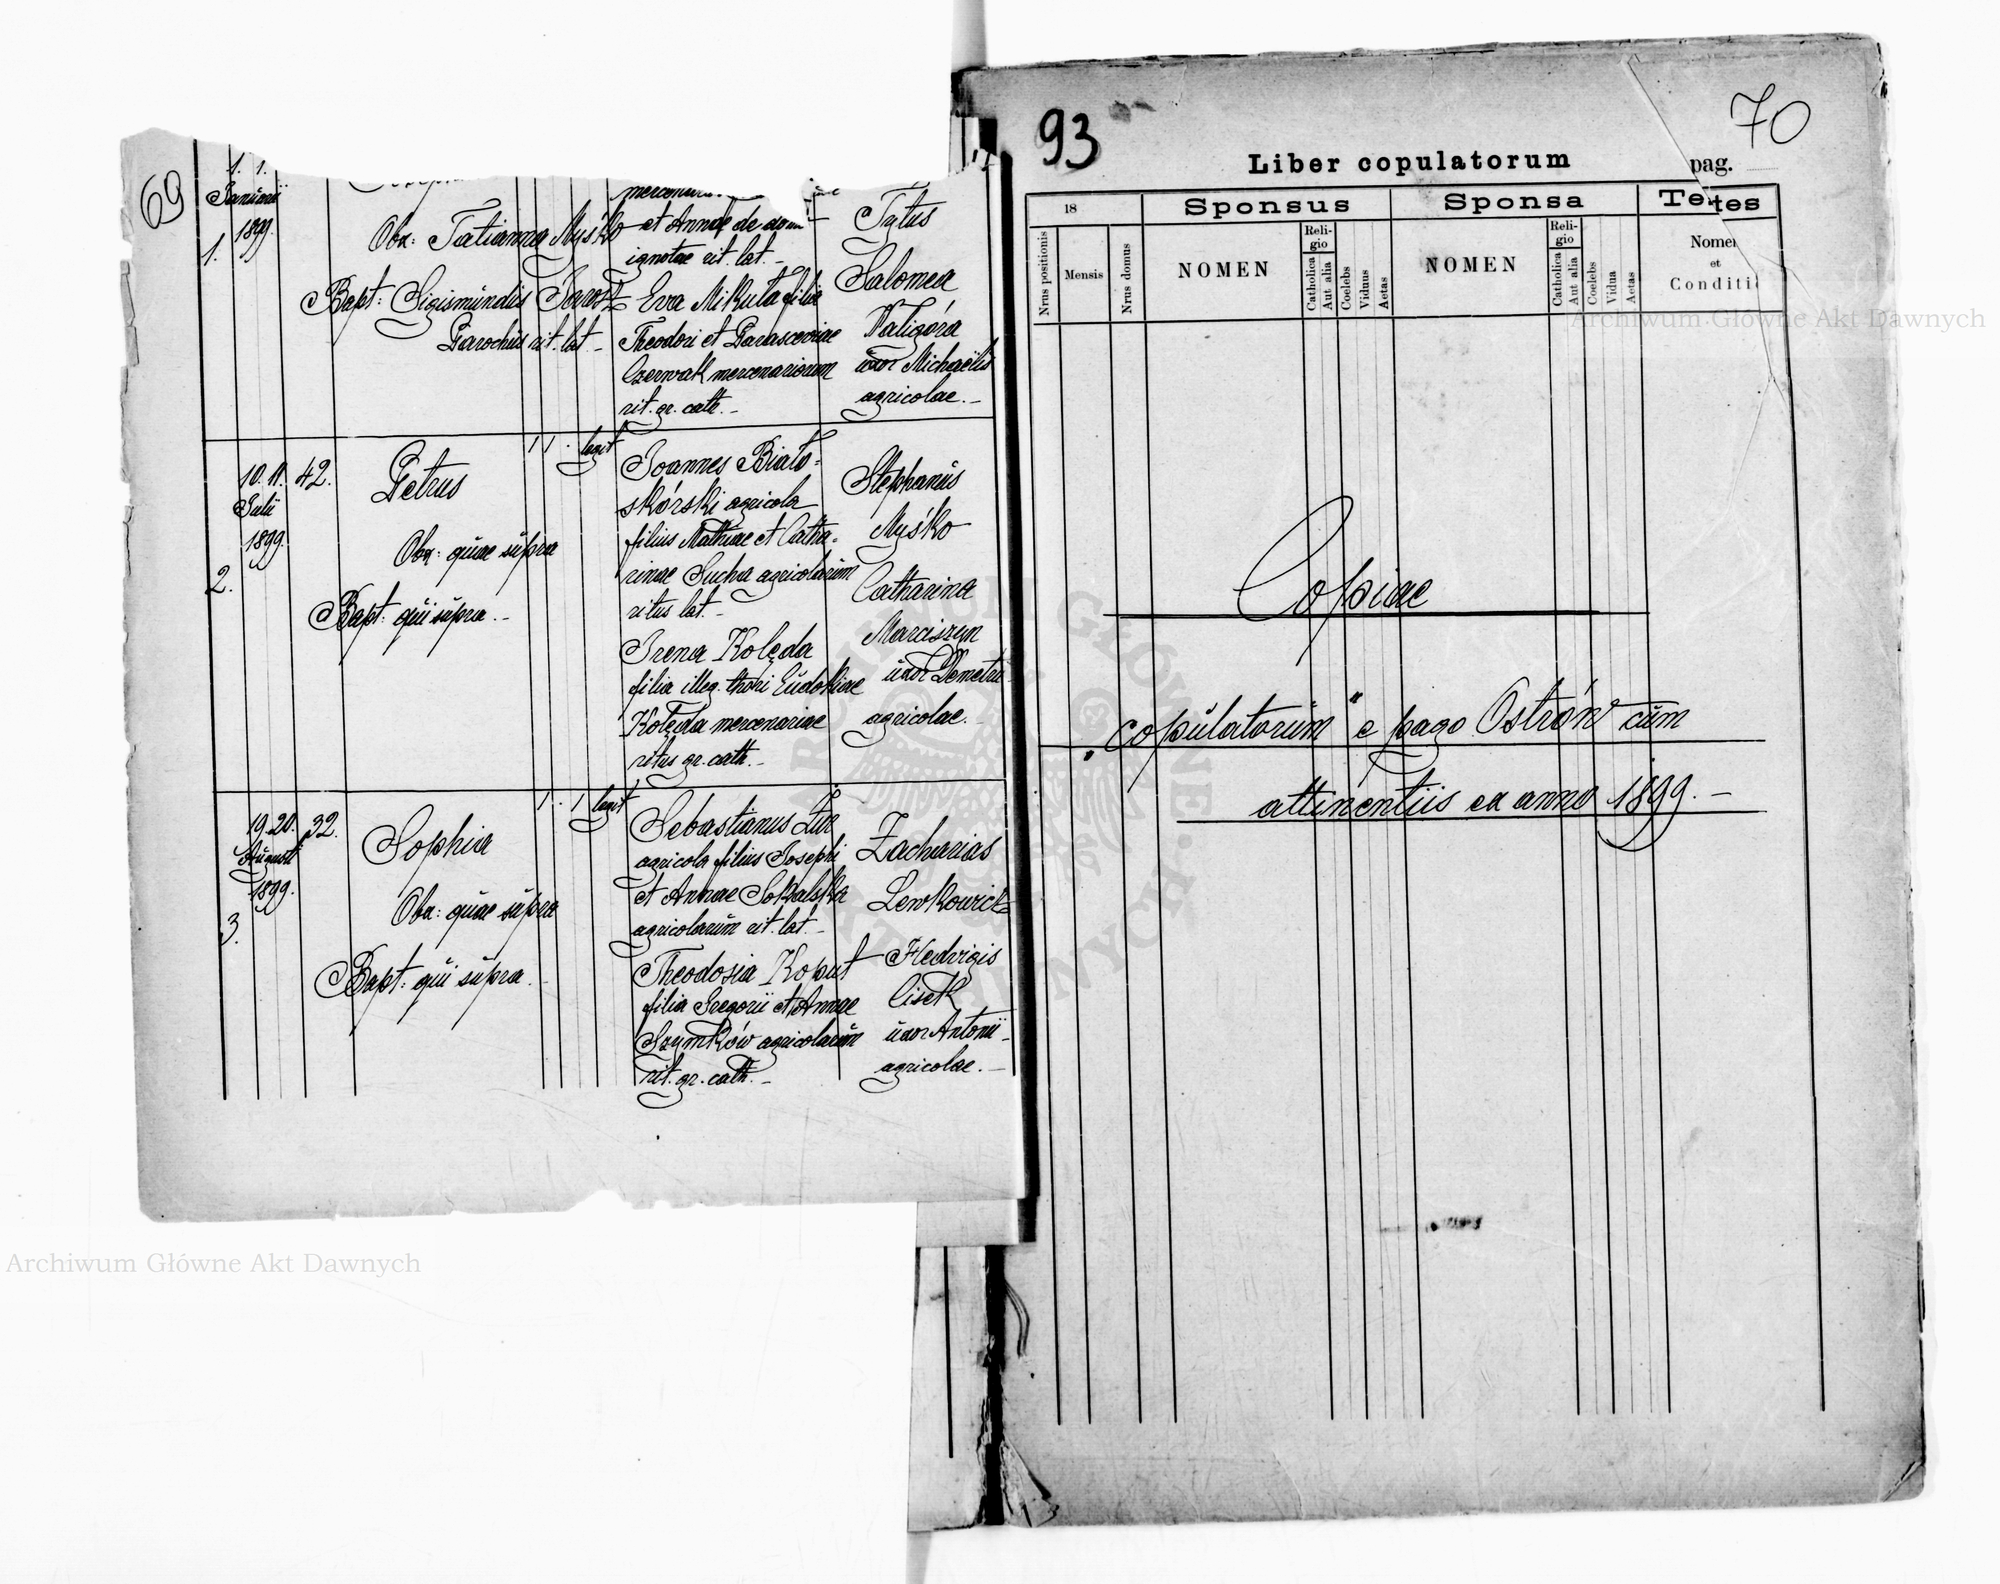 69
1. 1.
Januarii
1899.
1.
Obx: Tatianna Myśko
Bapt: Sigismundus Jarosz
Parochus rit. lat.
et Annae de dom
ignotae rit. lat. -
Eva Mikuta filia
Theodori et Parasceviae
Czerwak mercenariorum
rit. gr. cath. -
Tytus
Salomea
Waligóra
uxor Michaëlis
agricolae. -
2.
10. 11.
Julii
1899.
42.
Petrus
Obx: quae supra
Bapt: qui supra. -
1 1 . legit
Joannes Biało-
skórski agricola
filius Mathiae et Catha-
rinae Sucha agricolarum
ritus lat. -
Irena Kolęda
filia illeg. thori Eudokiae
Kolęda mercenariae
ritus gr. cath. -
Stephanus
Myśko
Catharina
Marciszyn
uxor Demetrii
agricolae. -
3.
19. 20.
Augusti
1899.
32.
Sophia
Obx: quae supra
Bapt: qui supra. -
1 . 1 legit
Sebastianus Żur
agricola filius Josephi
et Annae Sokalska
agricolarum rit. lat. -
Theodosia Koput
filia Gregorii et Annae
Szymków agricolarum
rit. gr. cath. -
Zacharias
Lewkowicz
Hedvigis
Cisek
uxor Antonii
agricolae. -
93
70
Liber copulatorum
pag.
18
Sponsus
Sponsa
Te tes
Nrus positionis
Mensis
Nrus domus
NOMEN
Reli-
gio
Catholica
Aut alia
Coelebs
Viduus
Aetas
NOMEN
Reli-
gio
Catholica
Aut alia
Coelebs
Vidua
Aetas
Nomen
et
Conditi
Copiae
„copulatorum“ e pago Ostrów cum
attinentiis ex anno 1899. -
Archiwum Główne Akt Dawnych
Archiwum Główne Akt Dawnych